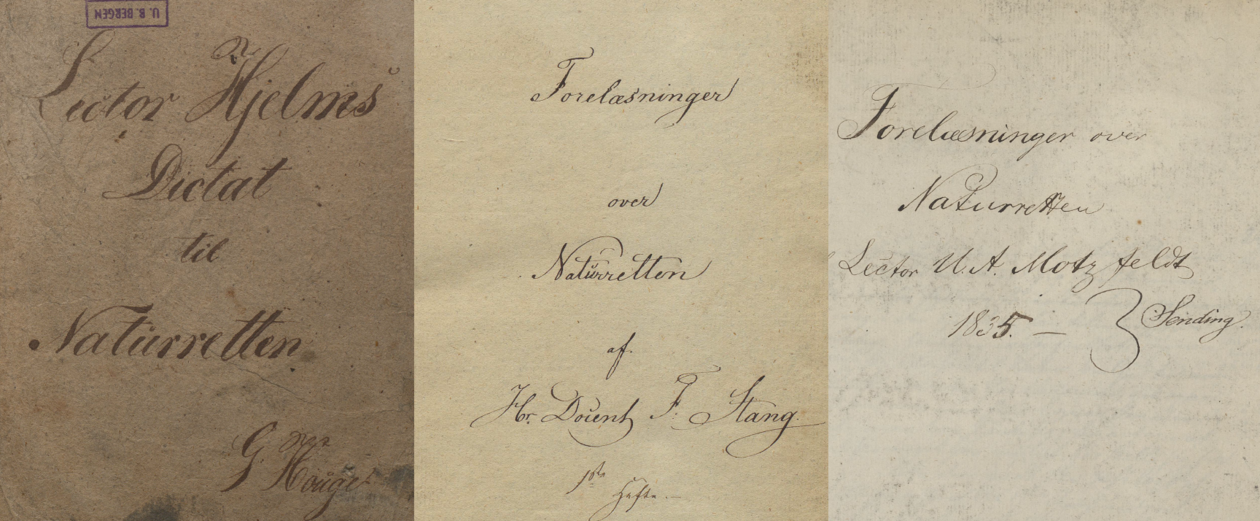 U. B. BERGEN
Lector Hjelms
Dictat
til
Naturretten
Forelæsninger
over
Naturretten
af
Hr. Docent F. Stang.
1ste Hefte.
Forelæsninger over
Naturretten
Lector U. A. Motzfeldt
1835. — Sending.